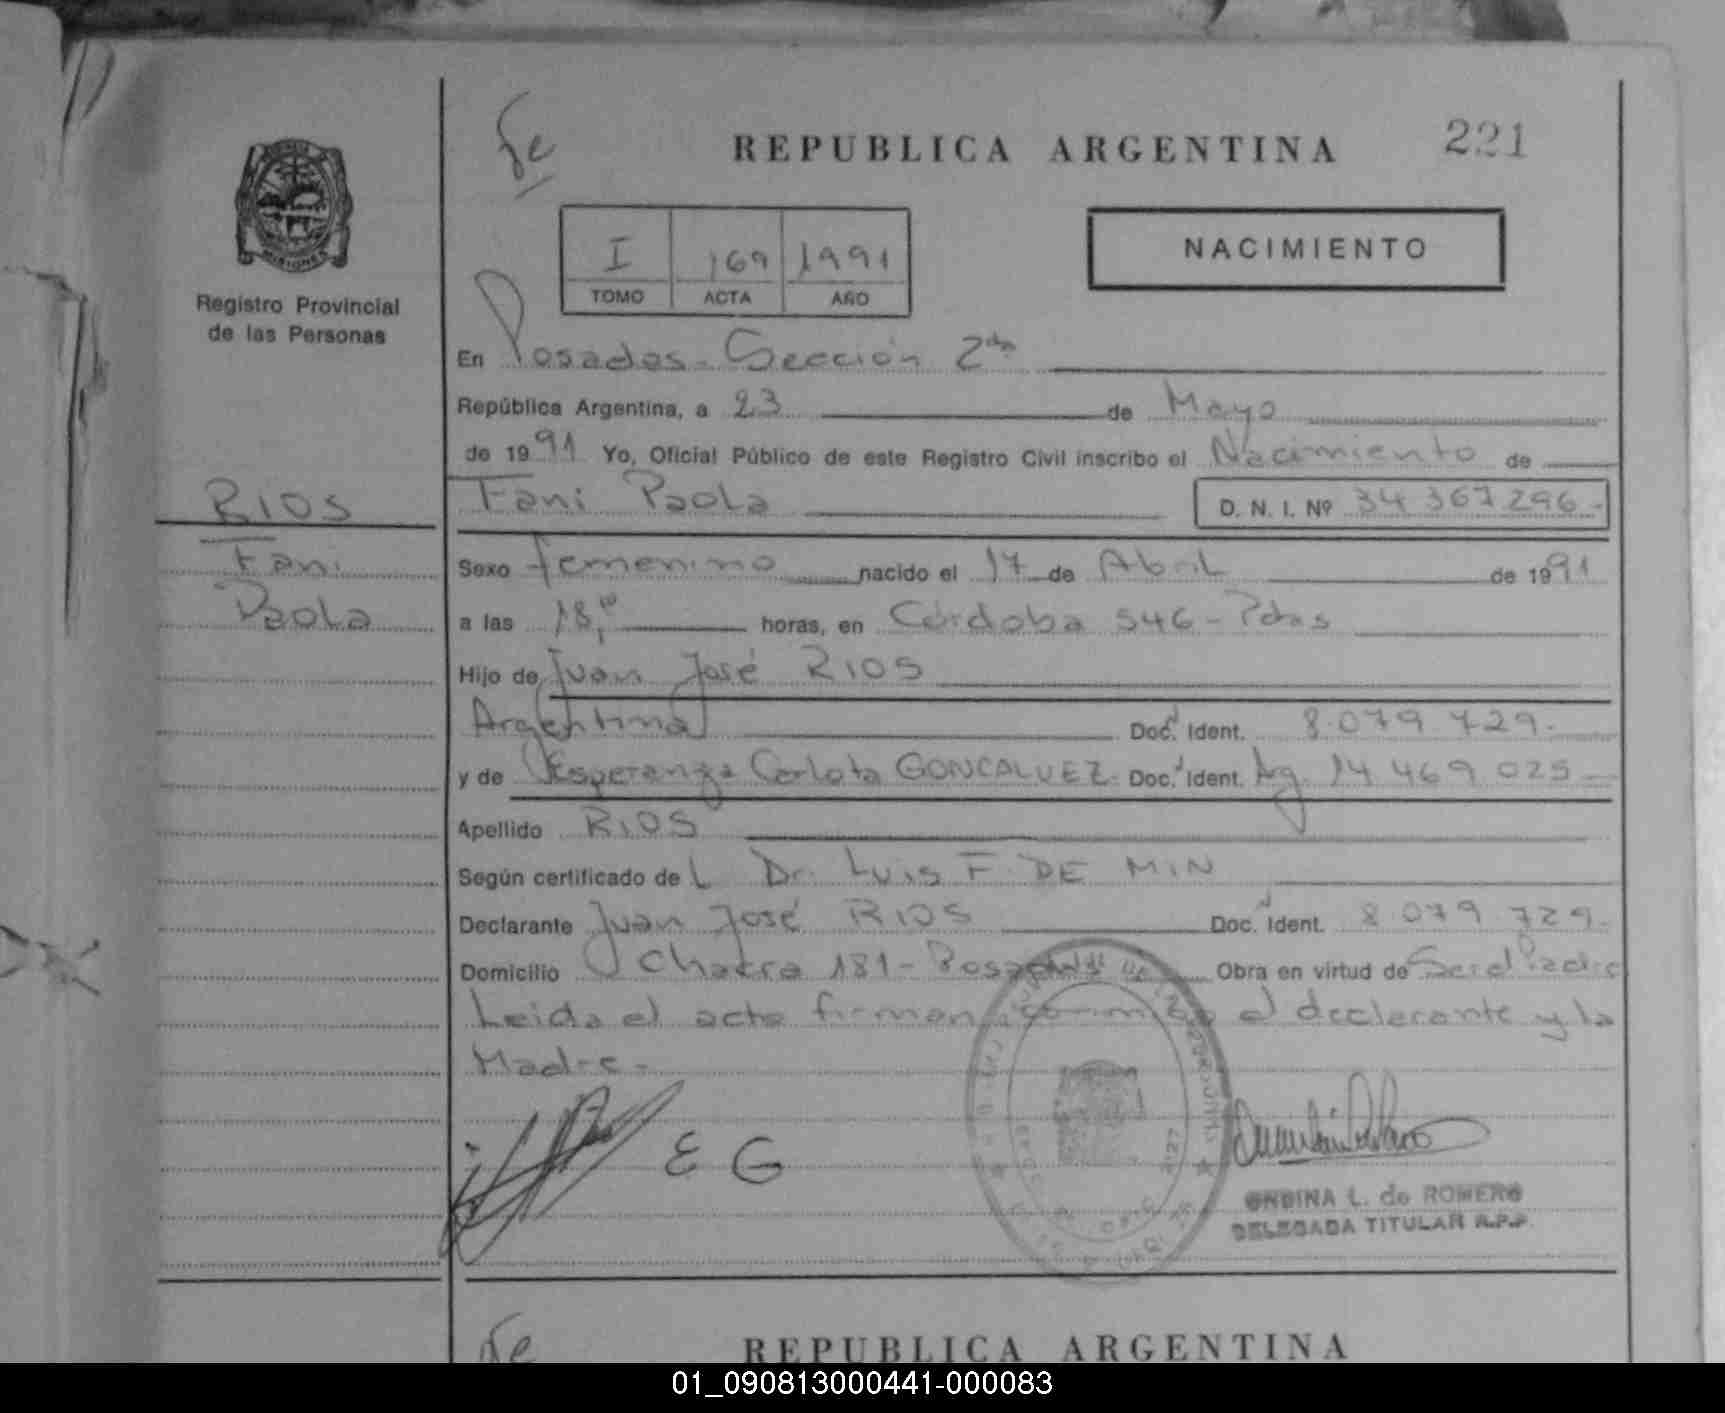 REPUBLICA ARGENTINA 221
I 169 1991
TOMO ACTA AÑO
NACIMIENTO
MISIONES
Registro Provincial
de las Personas
En Posadas - Sección 2da
República Argentina, a 23 de Mayo
de 1991 Yo, Oficial Público de este Registro Civil inscribo el Nacimiento de
RIOS
Fani Paola D. N. I. Nº 34 367 296-
Fani
Sexo femenino nacido el 17 de Abril de 1991
Paola
a las 18, horas, en Córdoba 546 - Pdas
Hijo de Juan José RIOS
Argentina Doc. Ident. 8.079.729.
y de Esperanza Carlota GONCALVEZ. Doc. Ident. Arg. 14 469 025
Apellido RIOS
Según certificado del Dr. Luis F. DE MIN
Declarante Juan José RIOS Doc. Ident. 8.079.729.
Domicilio Chacra 181 - Posadas Obra en virtud de Ser el Padre
Leida el acta firman conmigo el declarante y la
Madre.-
E G
ONDINA L. de ROMERO
DELEGADA TITULAR R.P.P.
REPUBLICA ARGENTINA
01_090813000441-000083